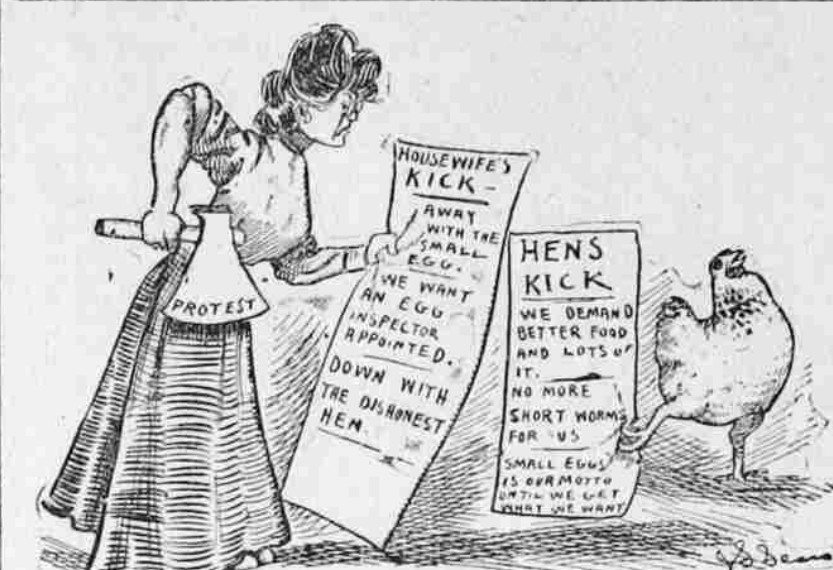 PROTEST
HOUSEWIFE'S
KICK -
AWAY
WITH THE
SMALL
EGG.
WE WANT
AN EGG
INSPECTOR
APPOINTED.
DOWN WITH
THE DISHONEST
HEN.
HENS
KICK
WE DEMAND
BETTER FOOD
AND LOTS OF
IT.
NO MORE
SHORT WORMS
FOR US
SMALL EGGS
IS OUR MOTTO
UNTIL WE GET
WHAT WE WANT